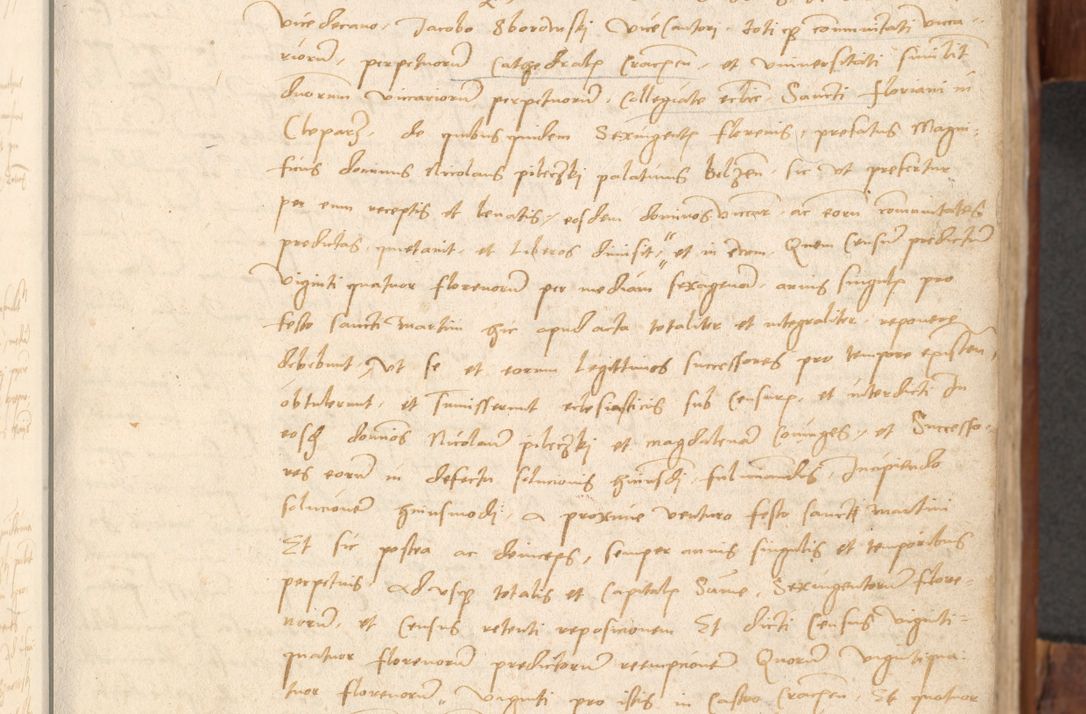 vicedecano, Jacobo Sborowski vicecantori, toti qz communitati vica-
riorum, perpetuorum Cathedralis Cracovien, et universitati similit
duorum vicariorum perpetuorum, Collegiate ecclie, Sancti Floriani in
Cleparz, de quibus quidem Sexingentis florenis, prefatus Magni-
ficus dominus Nicolaus pileczki palatinus belzen, sic ut prefertur
per eum receptis et levatis, eosdem dominos vicar, ac eorum communitates
predictas, quietavit, et liberos dimisit, et in Quem Censum predictum
viginti quatuor florenorum per mediam sexagenam, annis singulis pro
festo sancti Martini hic apud acta totaliter et integraliter, reponere
debebunt, Ut se et eorum legittimos successores pro tempore existen,
obtulerunt, et summiserunt ecclesiasticis sub censuris, et interdicti In
eosdem dominos Nicolaum pileczki et magdalenam Coniuges, et Successo-
res eorum in defectu solucionis huiusmodi, fulminandis, Incipiendo
solucionem huiusmodi, a proxime venturo festo sancti Martini
Et sic postea ac deinceps, semper annis singulis et temporibus
perpetuis Ad usqz totalis et Capitalis Summe, Sexingentorum flore-
norum, et Census retenti reposicionem Et dicti Census viginti-
quatuor florenorum predictorum reempcionem Quorum vigintiqua-
tuor florenorum, viginti pro istis in Castro Cracovien, Et quatuor